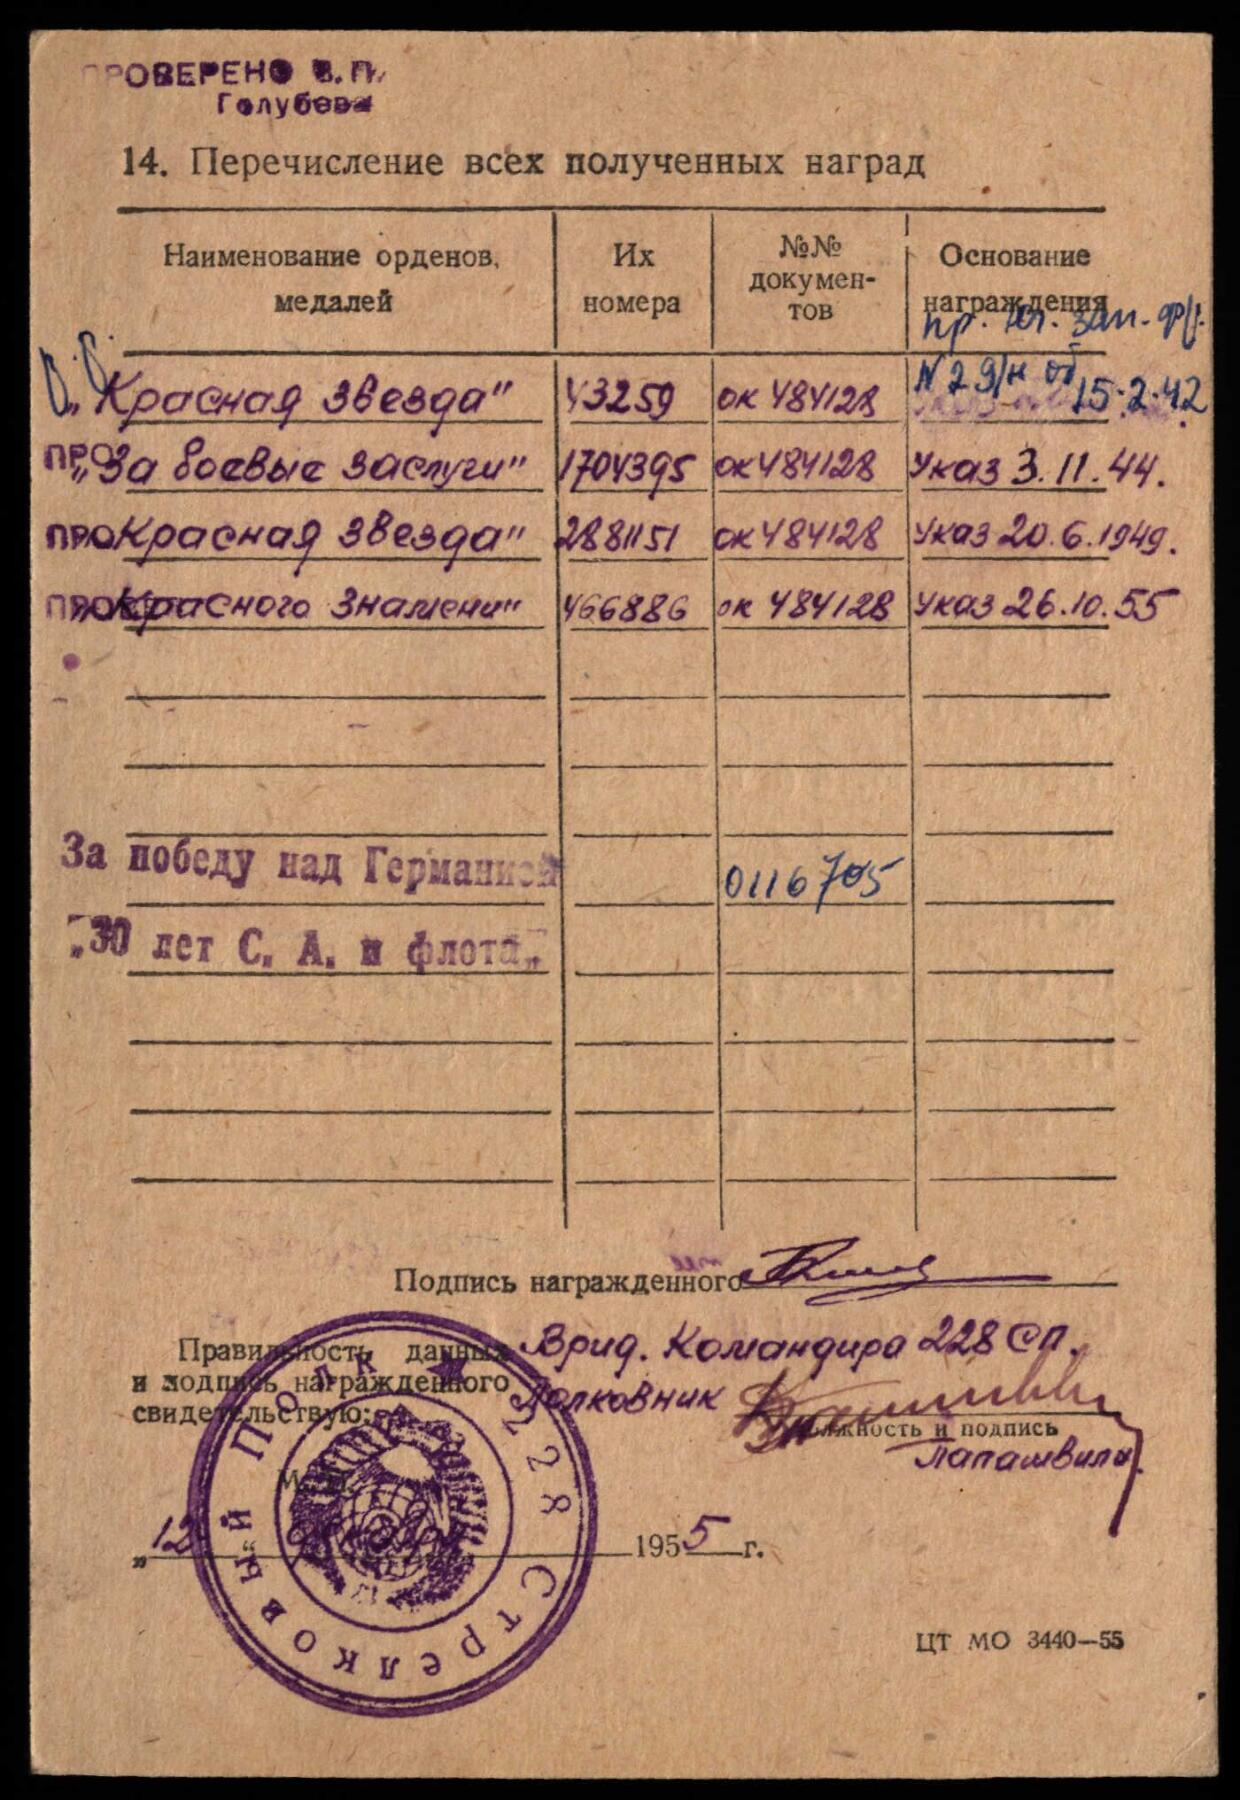 ПРОВЕРЕНО В.П.
Голубева
14. Перечисление всех полученных наград
Наименование орденов, медалей
Их номера
№№ докумен-тов
Основание награждения
пр. Юг. зап. фр.
"Красная звезда" 43259 ок 484128 N 29/н от 15.2.42
ПРО "За боевые заслуги" 1704395 ок 484128 Указ 3.11.44.
ПРО Красная звезда" 2881151 ок 484128 Указ 20.6.1949.
ПРО Красного Знамени" 466886 ок 484128 Указ 26.10.55
За победу над Германией 0116705
"30 лет С. А. и флота"
Подпись награжденного
Правильность данных
и подпись награжденного
свидетельствую:
Врид. Командира 228 СП.
Полковник
должность и подпись
Папашвили
М. П.
"12" 1955 г.
228 Стрелковый Полк
ЦТ МО 3440—55